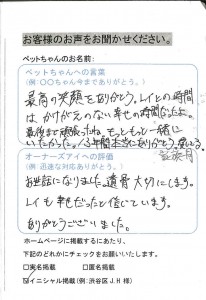 お客様のお声をお聞かせください。
ペットちゃんのお名前:
ペットちゃんへの言葉
(例:○○ちゃん今までありがとう。)
最高の笑顔をありがとう。レイとの時間
は、かけがえのない幸せの時間だったよ。
最後まで頑張ったね。もっともっと一緒に
いたかった。13年間本当にありがとう。愛してる。
オーナーズアイへの評価
(例:迅速な対応ありがとう。)
お世話になりました。遺骨大切にします。
レイも幸せだったと信じています。
ありがとうございました。
ホームページに掲載するにあたり、
下記のどれかにチェックをお願いします。
□実名掲載 □匿名掲載
☑イニシャル掲載(例:渋谷区J.H様)